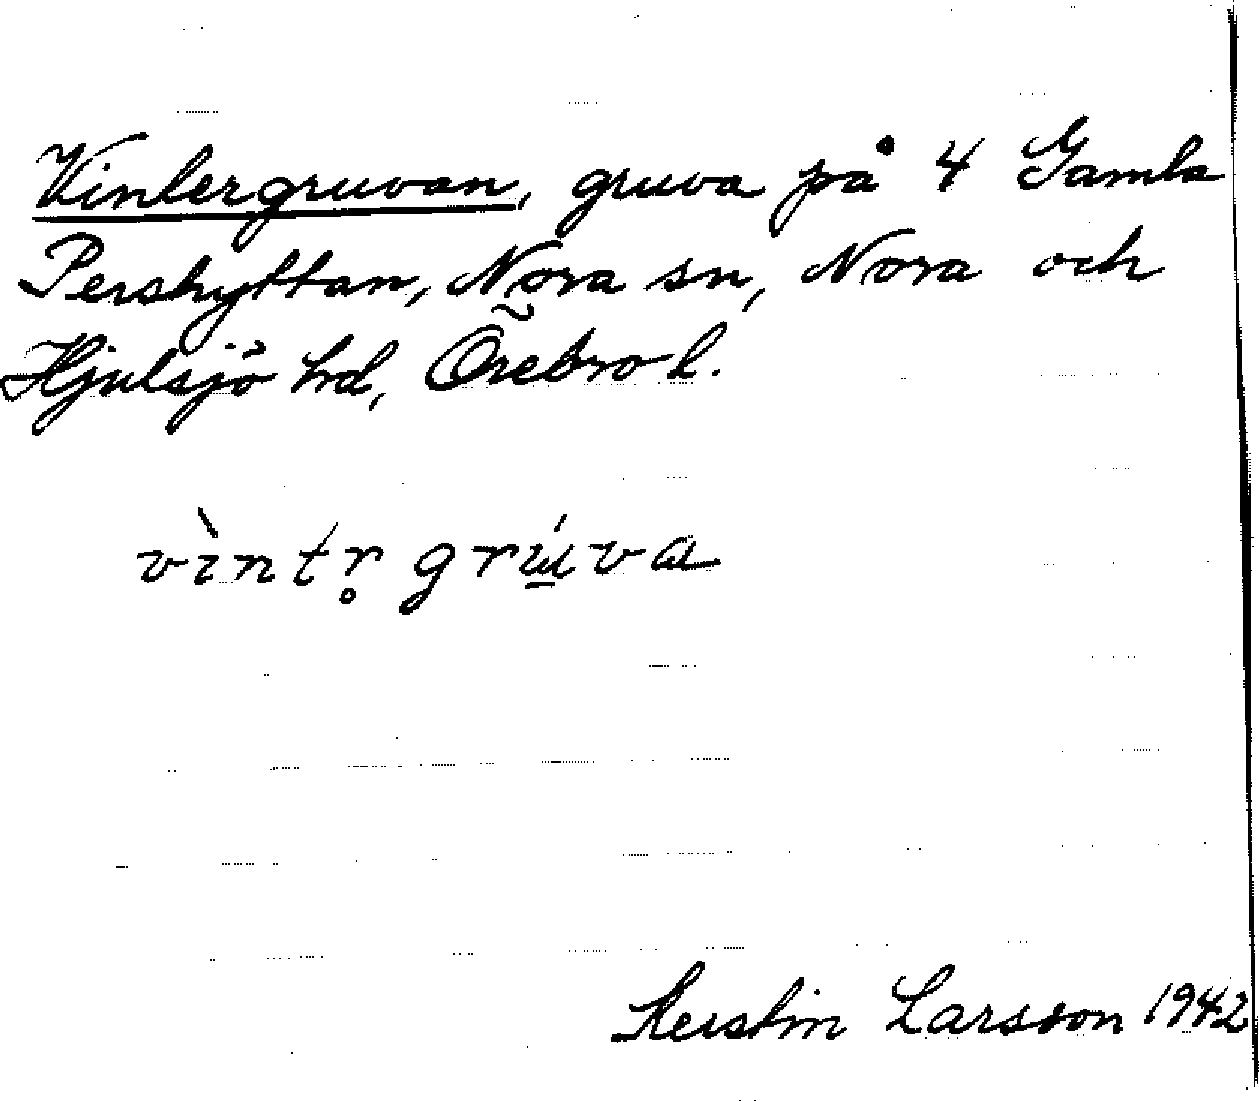 Vintergruvan, gruva på 4 Gamla
Pershyttan, Nora sn, Nora och
Hjulsjö hd, Örebro l.
vìntr̥ grúva
Kerstin Larsson 1942